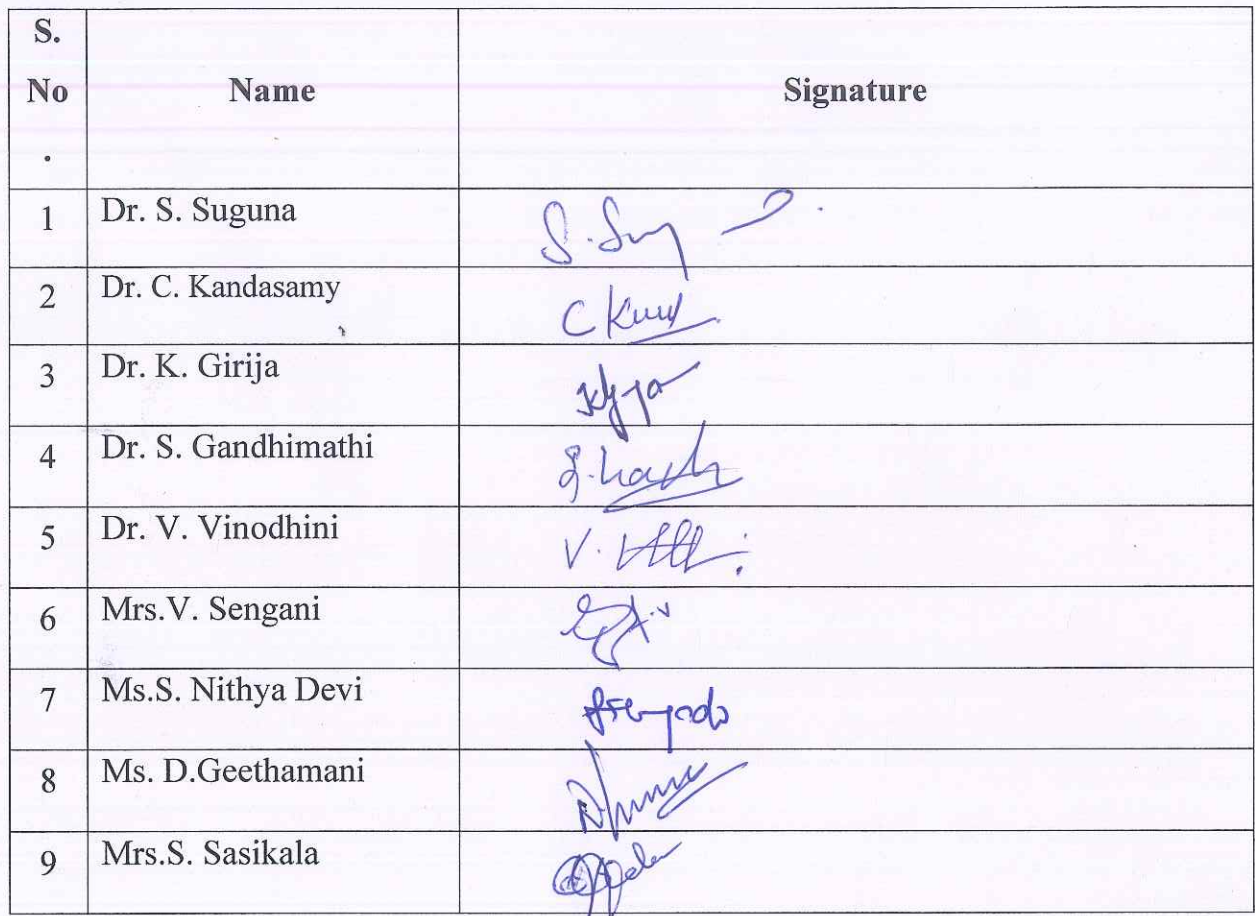 S.
No Name Signature
.
1 Dr. S. Suguna
2 Dr. C. Kandasamy
3 Dr. K. Girija
4 Dr. S. Gandhimathi
5 Dr. V. Vinodhini
6 Mrs.V. Sengani
7 Ms.S. Nithya Devi
8 Ms. D.Geethamani
9 Mrs.S. Sasikala